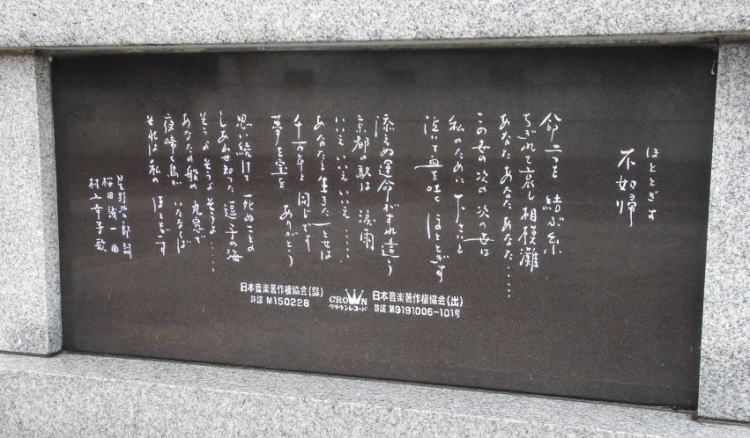 ほととぎす
不如帰
命二つを 結ぶ糸
ちぎれて哀し 相模灘
あなた、あなた、あなた……
この世の次の 次の世は
私のために 下さいと
泣いて血を吐く ほととぎす
添えぬ運命が すれ違う
京都の駅は 涙雨
いいえ いいえ いいえ……
あなたと生きた 一とせは
同じです
夢を宝を ありがとう
思い続けて 死ぬことの
しあわせ知った 逗子の海
そうよ そうよ そうよ……
あなたの船の 丸窓で
夜啼く鳥が いたならば
それは私の ほととぎす
星野哲郎 詞
桜田誠一 曲
村上幸子 歌
日本音楽著作権協会(録)
許諾 M150228
CROWN
クラウンレコード
日本音楽著作権協会(出)
許諾 第9191006-101号